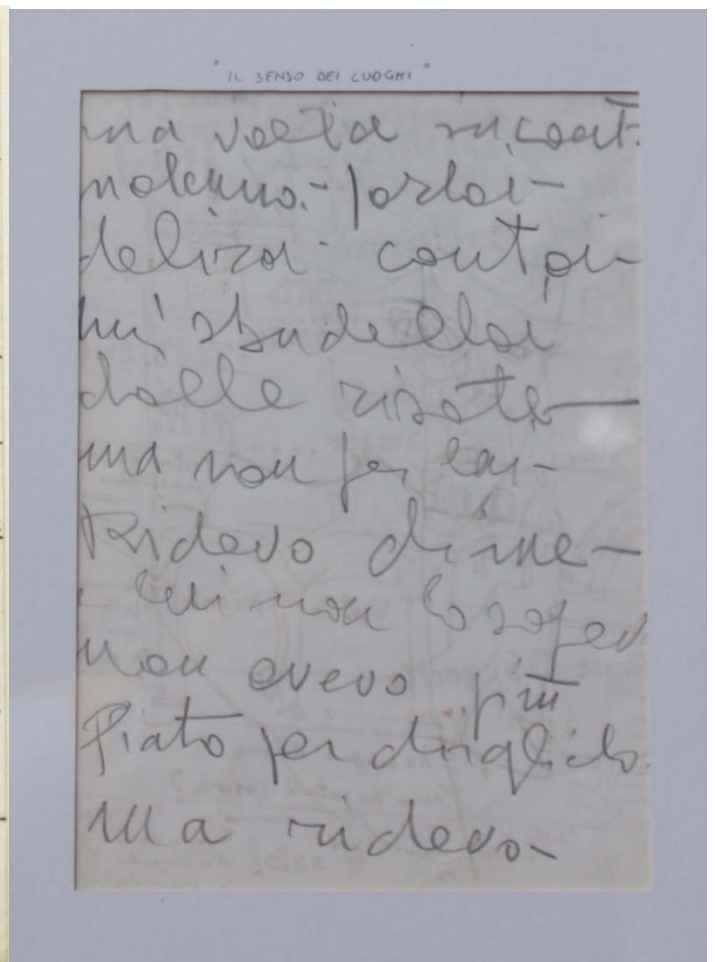 "IL SENSO DEI CUOGHI"
una volta incont.
parlai-
delirai- contai-
mi sbudellai
dalle risate-
ma non per lui-
Ridevo di me-
lui non lo sapev
non avevo più
Fiato per dirglielo.
Ma ridevo-